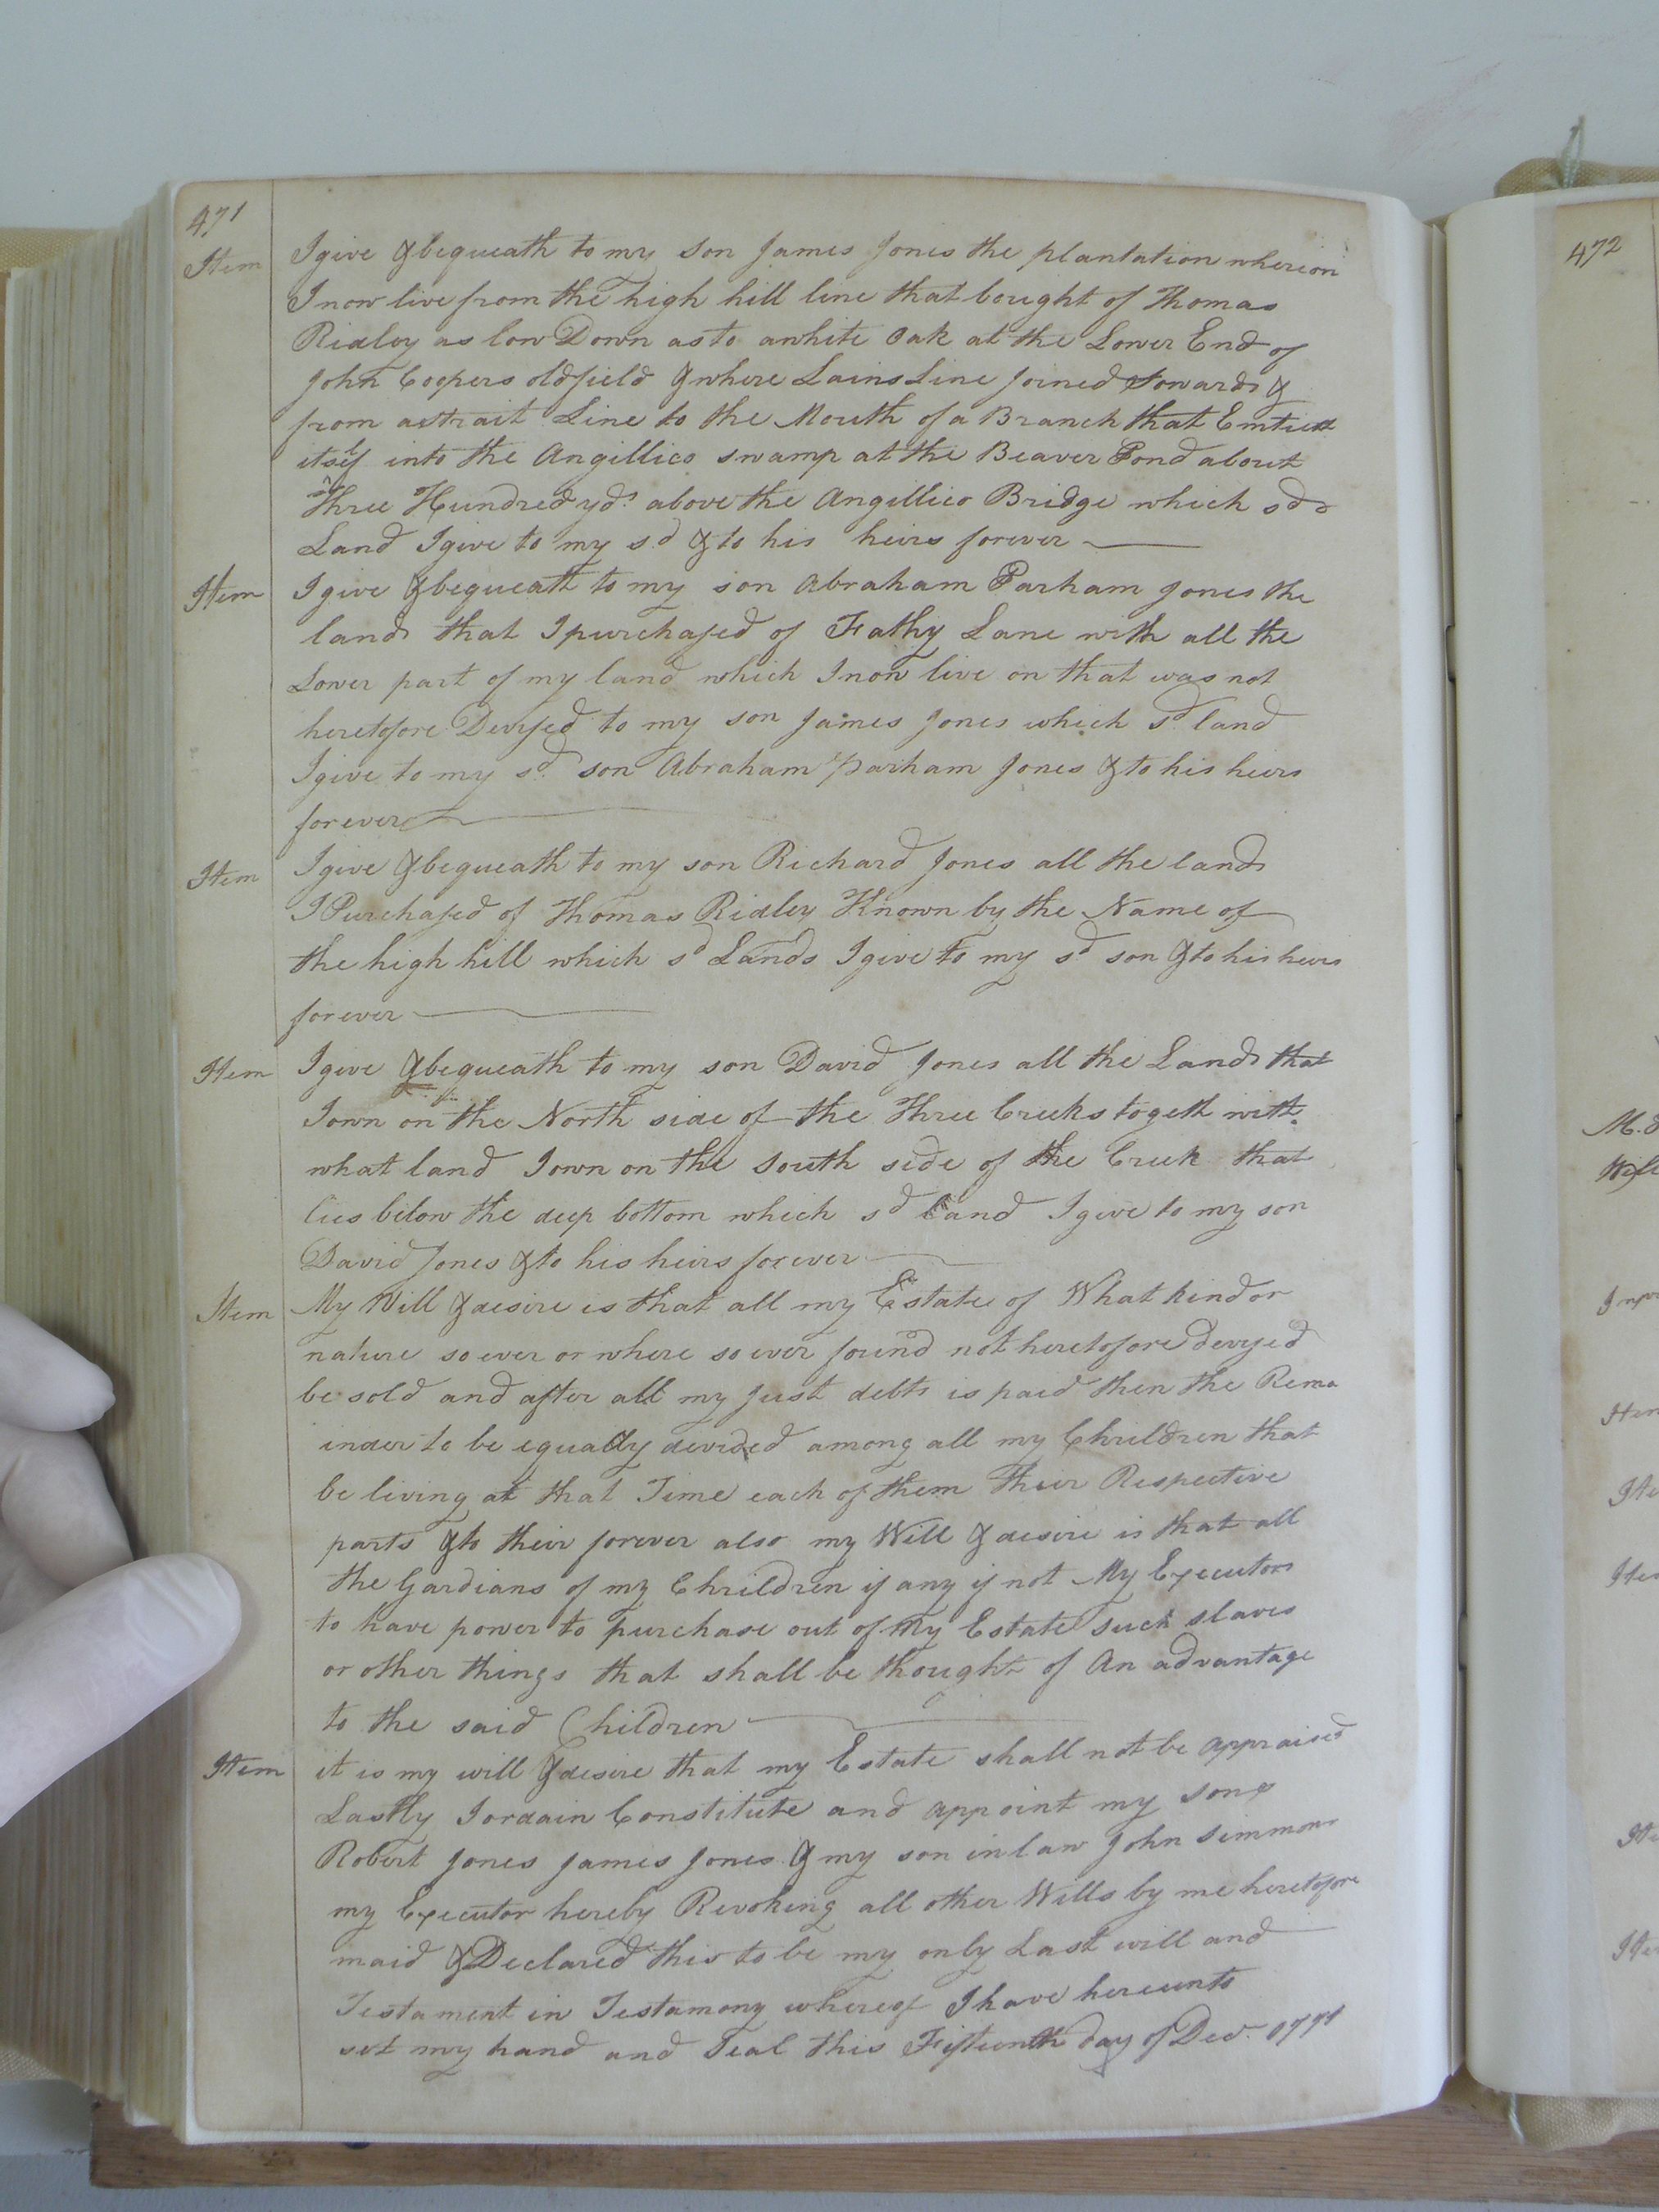 471
Item I give & bequeath to my son James Jones the plantation whereon
I now live from the high hill line that bought of Thomas
Ridley as low Down as to a white Oak at the Lower End of
John Coopers old field & where Lains Line joined &
from a strait Line to the Mouth of a Branch that Emties
itself into the Angillico swamp at the Beaver Pond about
Three Hundred yds. above the Angillico Bridge which sd
Land I give to my sd & to his heirs forever
Item I give & bequeath to my son Abraham Parham Jones the
lands that I purchased of Fathy Lane with all the
Lower part of my land which I now live on that was not
heretofore Devised to my son James Jones which sd land
I give to my sd. son Abraham Parham Jones & to his heirs
forever
Item I give & bequeath to my son Richard Jones all the lands
I Purchased of Thomas Ridley Known by the Name of
the high hill which sd Lands I give to my sd son & to his heirs
forever
Item I give & bequeath to my son David Jones all the Lands that
I own on the North side of the Three Creeks togeth with
what land I own on the South side of the Creek that
lies below the deep bottom which sd Land I give to my son
David Jones & to his heirs forever
Item My Will & desire is that all my Estate of What kind or
nature so ever or where so ever found not heretofore devised
be sold and after all my just debts is paid then the Rema
inder to be equally devided among all my Chrildren that
be living at that Time each of them Their Respective
parts & to their forever also my Will & desire is that all
the Gardians of my Chrildren if any if not My Executors
to have power to purchase out of My Estate such slaves
or other things that shall be thought of An advantage
to the said Children
Item it is my will & desire that my Estate shall not be appraised
Lastly I ordain Constitute and appoint my sons
Robert Jones James Jones & my son in law John Simmons
my Executor hereby Revoking all other Wills by me heretofore
maid & Declared this to be my only Last will and
Testament in Testamony whereof I have hereunto
set my hand and Seal this Fifteenth day of Decr. 1791
472
Item